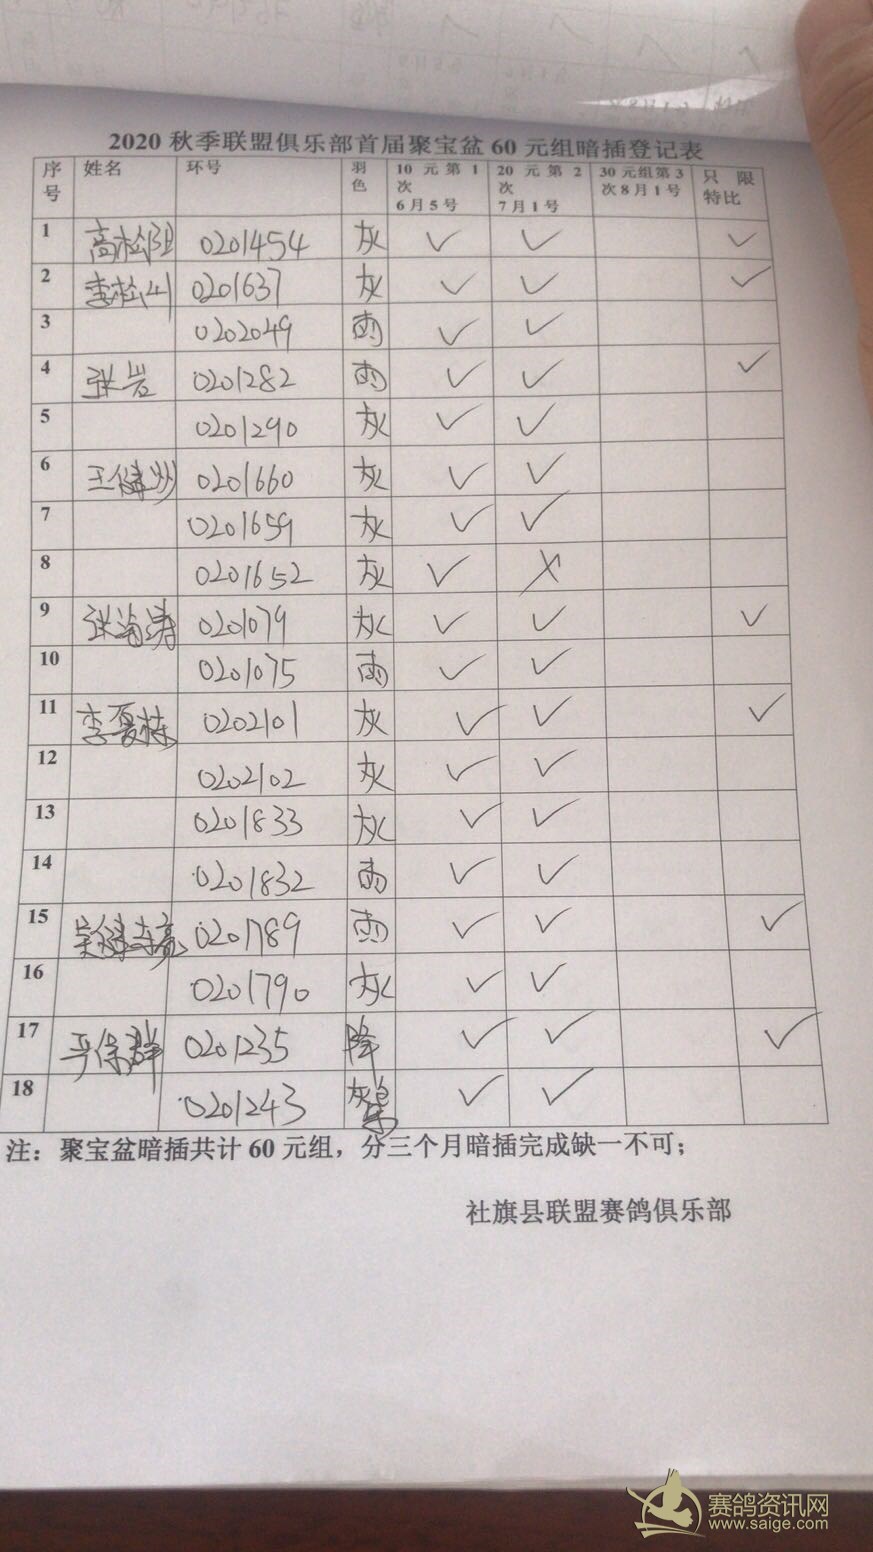 2020秋季联盟俱乐部首届聚宝盆60元组暗插登记表
序号 姓名 环号 羽色 10元第1次6月5号 20元第2次7月1号 30元组第3次8月1号 只限特比
1 高松阳 0201454 灰 ✓ ✓ ✓
2 李松山 0201637 灰 ✓ ✓ ✓
3 0202049 雨 ✓ ✓
4 张岩 0201282 雨 ✓ ✓ ✓
5 0201290 灰 ✓ ✓
6 王健州 0201660 灰 ✓ ✓
7 0201659 灰 ✓ ✓
8 0201652 灰 ✓ ✗
9 张海涛 0201079 灰 ✓ ✓ ✓
10 0201075 雨 ✓ ✓
11 李夏栋 0202101 灰 ✓ ✓ ✓
12 0202102 灰 ✓ ✓
13 0201833 灰 ✓ ✓
14 0201832 雨 ✓ ✓
15 0201789 雨 ✓ ✓ ✓
16 0201790 灰 ✓ ✓
17 平保群 0201235 降 ✓ ✓ ✓
18 0201243 灰 ✓ ✓
注：聚宝盆暗插共计60元组，分三个月暗插完成缺一不可；
社旗县联盟赛鸽俱乐部
赛鸽资讯网
www.saige.com